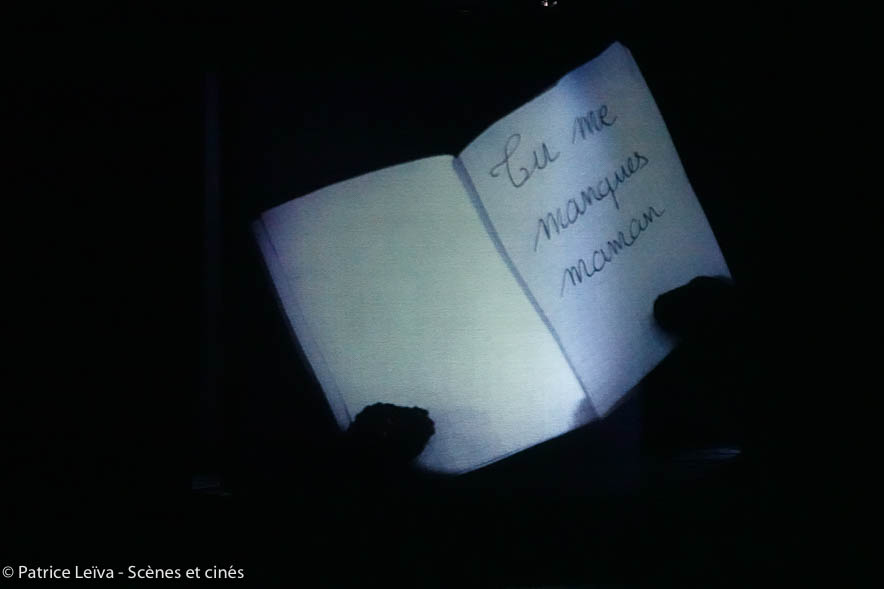 Tu me
manques
maman
© Patrice Leïva - Scènes et cinés